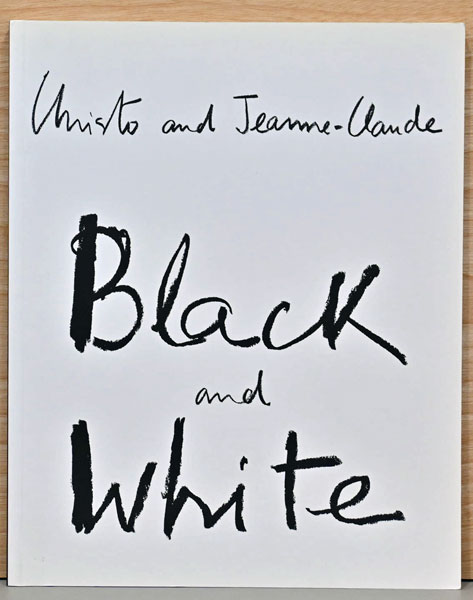 Christo and Jeanne-Claude
Black
and
White